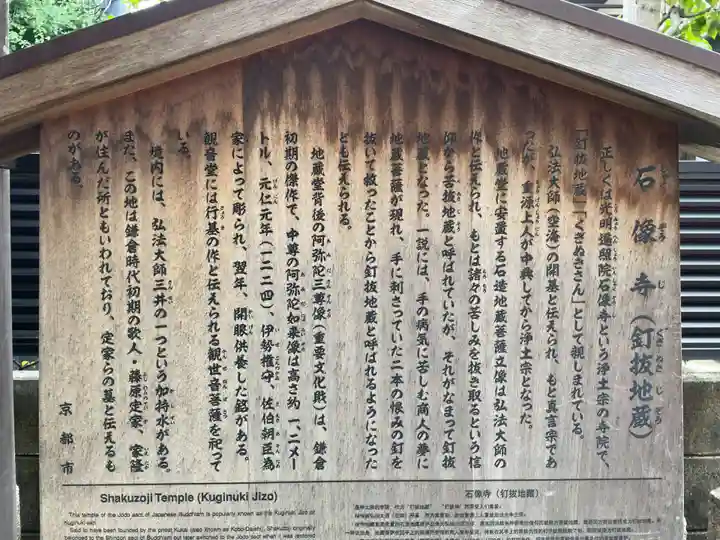 石像寺(釘抜地蔵)
正しくは光明遍照院石像寺という浄土宗の寺院で、
「釘抜地蔵」「くぎぬきさん」として親しまれている。
弘法大師(空海)の開基と伝えられ、もと真言宗であ
ったが、重源上人が中興してから浄土宗となった。
地蔵堂に安置する石造地蔵菩薩立像は弘法大師の
作と伝えられ、もとは諸々の苦しみを抜き取るという信
仰から苦抜地蔵と呼ばれていたが、それがなまって釘抜
地蔵となった。一説には、手の病気に苦しむ商人の夢に
地蔵菩薩が現れ、手に刺さっていた二本の恨みの釘を
抜いて救ったことから釘抜地蔵と呼ばれるようになった
とも伝えられる。
地蔵堂背後の阿弥陀三尊像(重要文化財)は、鎌倉
初期の傑作で、中尊の阿弥陀如来像は高さ約一、二メー
トル、元仁元年(一二二四)、伊勢権守、佐伯朝臣為
家によって彫られ、翌年、開眼供養した銘がある。
観音堂には行基の作と伝えられる観世音菩薩を祀って
いる。
境内には、弘法大師三井の一つという加持水がある。
また、この地は鎌倉時代初期の歌人・藤原定家、家隆
が住んだ所ともいわれており、定家らの墓と伝えるも
のがある。
京都市
Shakuzoji Temple (Kuginuki Jizo)
This temple of the Jodo sect of Japanese Buddhism is popularly known as the Kuginuki Jizo or
Kuginuki-san.
Said to have been founded by the priest Kukai (also known as Kobo-Daishi), Shakuzoji originally
belonged to the Shingon sect of Buddhism but later switched to the Jodo sect when it was restored
石像寺(釘抜地藏)